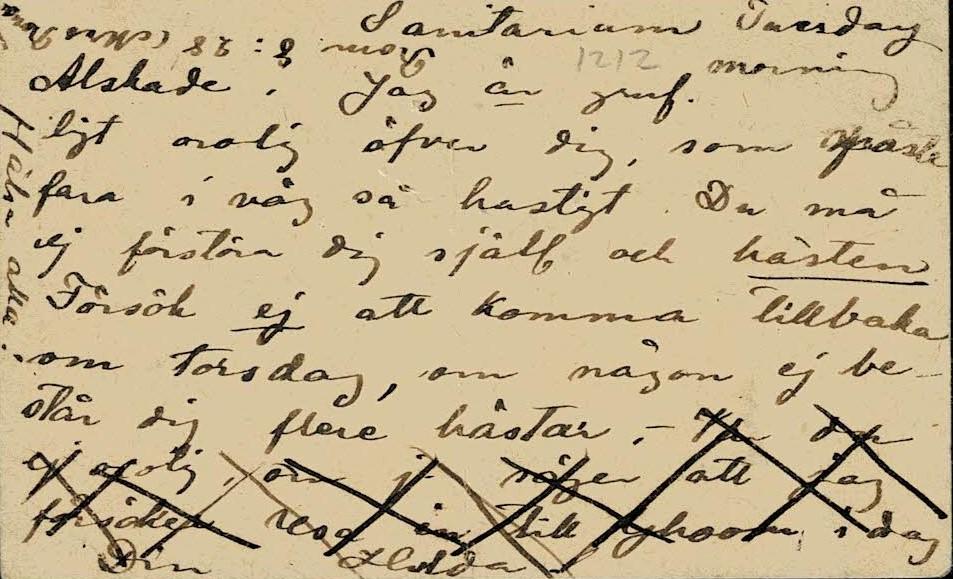 Sanitarium Tuesday
morning
1212
Älskade. Jag är gruf-
ligt orolig öfver dig, som måste
fara i väg så hastigt. Du må
ej förstöra dig själf och hästen
Försök ej att komma tillbaka
om torsdag, om någon ej be-
står dig flere hästar. –
ej orolig, om j. säger att jag
försöker resa in till i dag
Din Hulda
Hälsa alla.
8:28